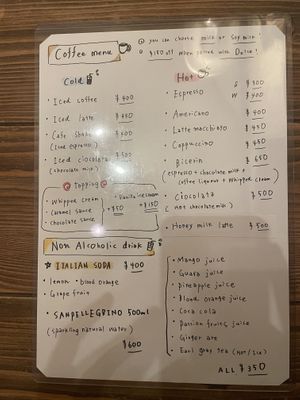 Coffee menu
@ you can choose milk or soy milk!
@ $150 off when paired with Dolce!
Cold
・Iced coffee $400
・Iced latte $450
・Cafe Shake
(Iced espresso)
・Iced ciocolata $500
(chocolate milk)
@ Topping @
・Whipped cream
・Caramel sauce
・Chocolate sauce
+$50
・Vanilla ice cream
+$150
Hot
・Espresso S $300
W $400
・Americano $400
・Latte macchiato $450
・Cappuccino $450
・Bicerin $650
(espresso + chocolate milk +
coffee liqueur + whipped cream)
・Cioccolata $500
(hot chocolate milk)
・Honey milk latte $500
Non Alcoholic drink
☆ ITALIAN SODA $400
・lemon ・blood orange
・Grapefruit
・SANPELLEGRINO 500ml
(sparkling natural water)
$600
・Mango juice
・Guava juice
・Pineapple juice
・Blood orange juice
・Coca cola
・Passion fruits juice
・Ginger ale
・Earl gray tea (Hot/Ice)
ALL $350